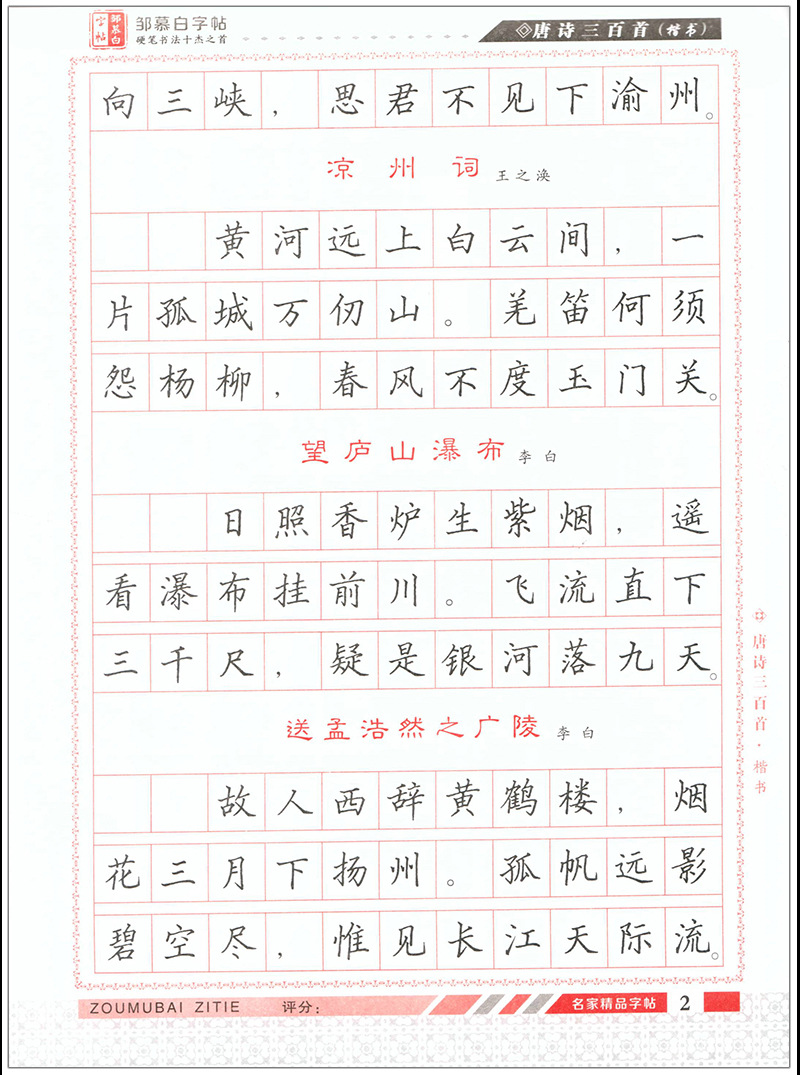 邹慕白字帖
邹慕白字帖
硬笔书法十杰之首
唐诗三百首（楷书）
向三峡，思君不见下渝州。
凉州词 王之涣
黄河远上白云间，一
片孤城万仞山。羌笛何须
怨杨柳，春风不度玉门关。
望庐山瀑布 李白
日照香炉生紫烟，遥
看瀑布挂前川。飞流直下
三千尺，疑是银河落九天。
送孟浩然之广陵 李白
故人西辞黄鹤楼，烟
花三月下扬州。孤帆远影
碧空尽，惟见长江天际流。
唐诗三百首·楷书
ZOUMUBAI ZITIE 评分： 名家精品字帖 2